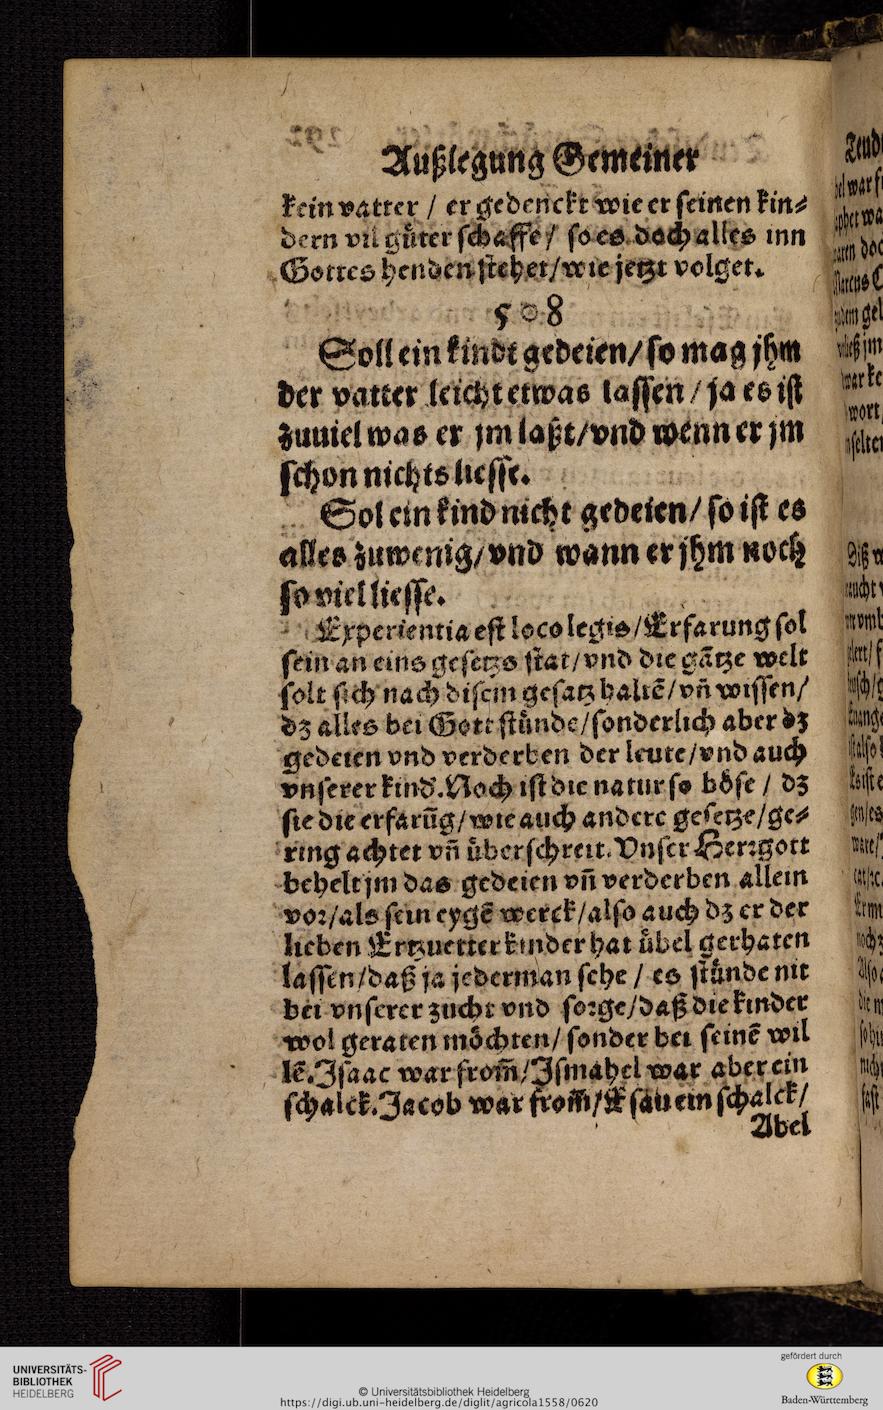 Außlegung Gemeiner
kein vatter / er gedenckt wie er seinen kin⸗
dern vil guͤter schaffe / so es doch alles inn
Gottes henden stehet / wie jetzt volget.
508
Soll ein kindt gedeien / so mag jhm
der vatter leicht etwas lassen / ja es ist
zuuiel was er jm laßt / vnd wenn er jm
schon nichts liesse.
Sol ein kind nicht gedeien / so ist es
alles zuwenig / vnd wann er jhm noch
so viel liesse.
Experientia est loco legis / Erfarung sol
sein an eins gesetzs stat / vnd die gãtze welt
solt sich nach disem gesatz haltẽ / vñ wissen /
dz alles bei Gott stuͤnde / sonderlich aber dz
gedeien vnd verderben der leute / vnd auch
vnserer kind. Noch ist die natur so boͤse / dz
sie die erfarũg / wie auch andere gesetze / ge⸗
ring achtet vñ uͤberschreit. Vnser Herrgott
behelt jm das gedeien vñ verderben allein
vor / als sein eygẽ werck / also auch dz er der
lieben Ertzuetter kinder hat uͤbel gerhaten
lassen / daß ja jederman sehe / es stuͤnde nit
bei vnserer zucht vnd sorge / daß die kinder
wol geraten moͤchten / sonder bei seinẽ wil
lẽ. Isaac war from̃ / Ismahel war aber ein
schalck. Jacob war from̃ / Esau ein schalck /
Abel
UNIVERSITÄTS-
BIBLIOTHEK
HEIDELBERG
© Universitätsbibliothek Heidelberg
https://digi.ub.uni-heidelberg.de/diglit/agricola1558/0620
gefördert durch
Baden-Württemberg